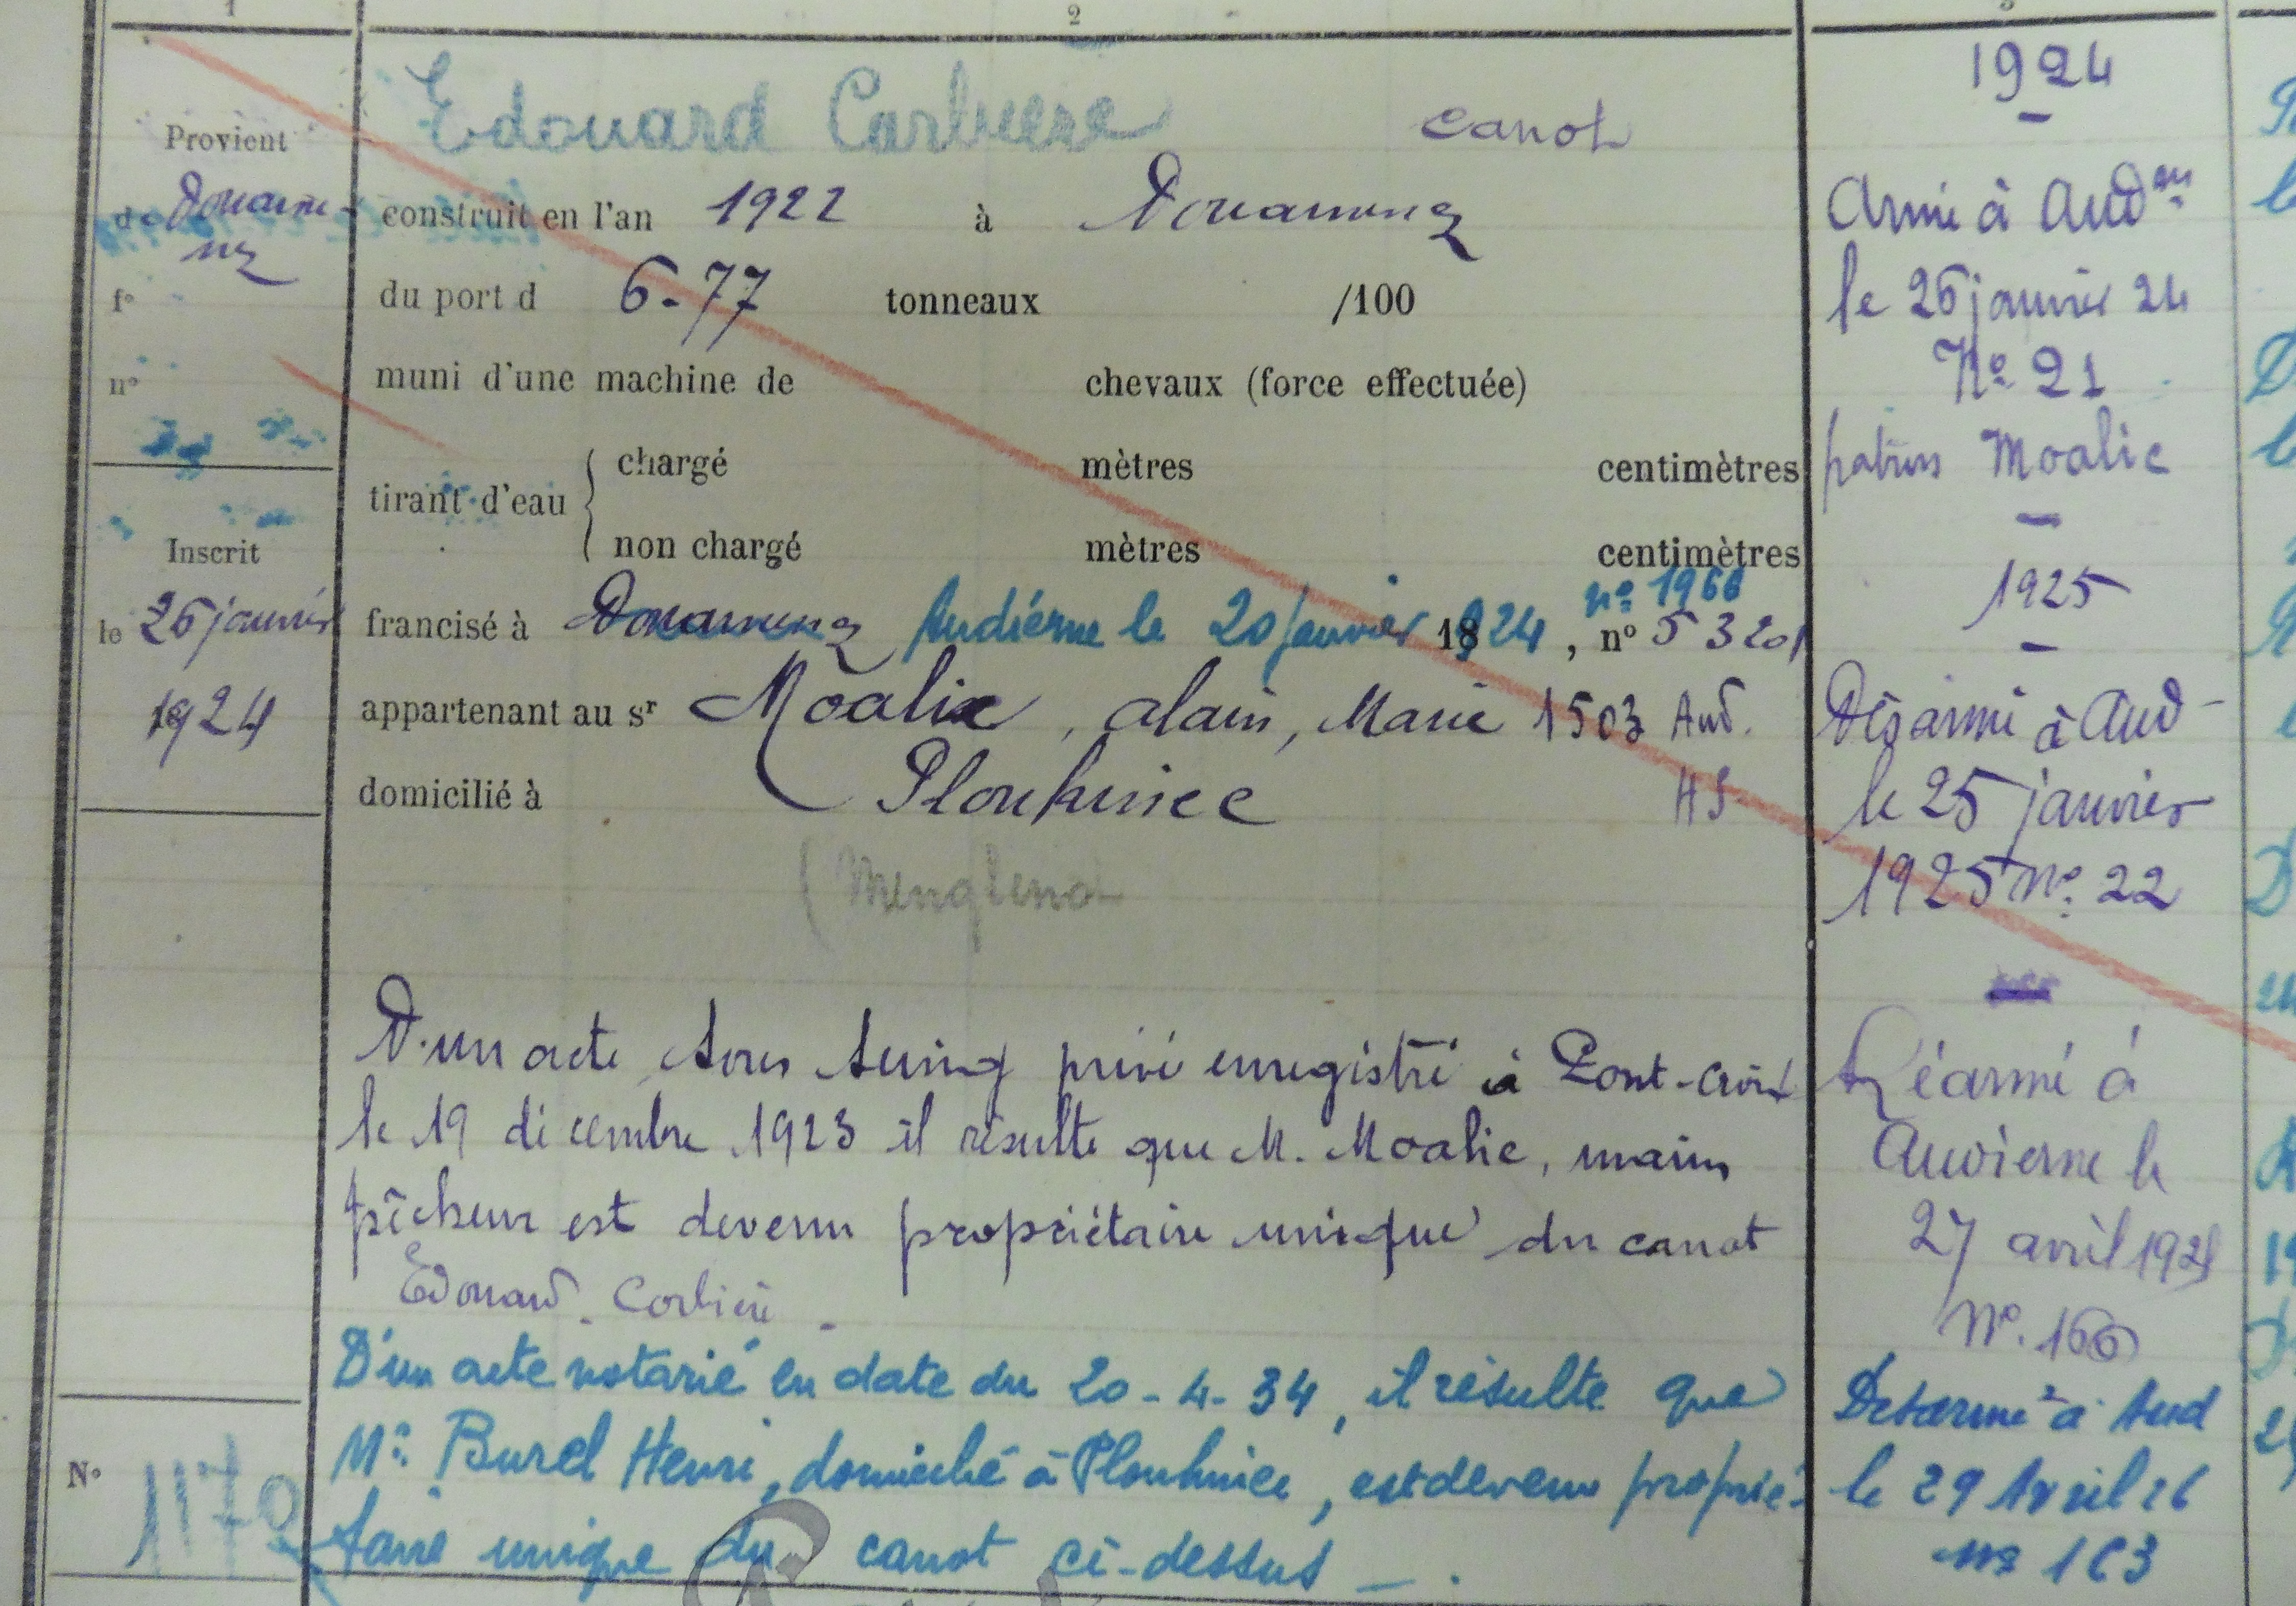 1
2
Provient
de Douarne-
nz
fº
nº
Inscrit
le 26 janvier
1924
Nº 1170
Edouard Corbiere canot
construit en l'an 1922 à Douarnenez
du port d 6-77 tonneaux /100
muni d'une machine de chevaux (force effectuée)
tirant d'eau { chargé mètres centimètres
non chargé mètres centimètres
nº 1966
francisé à Douarnenez Audierne le 20 janvier 1924, nº 5320
appartenant au sr Moalic, Alain, Marie 1503 Aud.
domicilié à Plouhinec HS
(Menglenot
D'un acte sous seing privé enregistré à Pont-Croix
le 19 décembre 1923 il résulte que M. Moalic, marin
pêcheur est devenu propriétaire unique du canot
Edouard Corbière.
D'un acte notarié en date du 20-4-34, il résulte que
Mr Burel Henri, domicilié à Plouhinec, est devenu proprié-
taire unique du canot ci-dessus
1924
Armé à Aud
le 26 janvier 24
Nº 21
patron Moalic
1925
Désarmé à Aud
le 25 janvier
1925 Nº 22
Réarmé à
Audierne le
27 avril 192
Nº 166
Désarmé à Aud
le 29 Avril 26
Nº 163